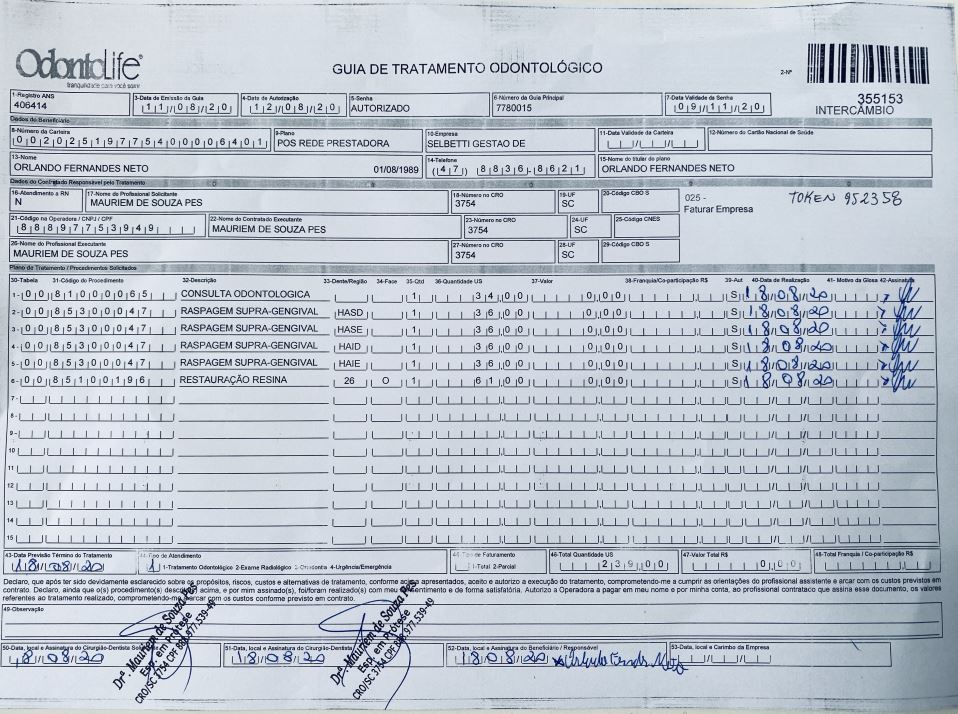 OdontoLife®
tranquilidade para você sorrir
GUIA DE TRATAMENTO ODONTOLÓGICO
2-Nº
355153
INTERCÂMBIO
1-Registro ANS
406414
3-Data de Emissão da Guia
11/08/20
4-Data de Autorização
12/08/20
5-Senha
AUTORIZADO
6-Número da Guia Principal
7780015
7-Data Validade da Senha
09/11/20
Dados do Beneficiário
8-Número da Carteira
00202519775400006401
9-Plano
POS REDE PRESTADORA
10-Empresa
SELBETTI GESTAO DE
11-Data Validade da Carteira
12-Número do Cartão Nacional de Saúde
13-Nome
ORLANDO FERNANDES NETO 01/08/1989
14-Telefone
(47) 8836-8621
15-Nome do titular do plano
ORLANDO FERNANDES NETO
Dados do Contratado Responsável pelo Tratamento
16-Atendimento a RN
N
17-Nome do Profissional Solicitante
MAURIEM DE SOUZA PES
18-Número no CRO
3754
19-UF
SC
20-Código CBO S
025 -
Faturar Empresa
TOKEN 952358
21-Código na Operadora / CNPJ / CPF
88897753949
22-Nome do Contratado Executante
MAURIEM DE SOUZA PES
23-Número no CRO
3754
24-UF
SC
25-Código CNES
26-Nome do Profissional Executante
MAURIEM DE SOUZA PES
27-Número no CRO
3754
28-UF
SC
29-Código CBO S
Plano de Tratamento / Procedimentos Solicitados
30-Tabela 31-Código do Procedimento 32-Descrição 33-Dente/Região 34-Face 35-Qtd 36-Quantidade US 37-Valor 38-Franquia/Co-participação R$ 39-Aut 40-Data de Realização 41-Motivo da Glosa 42-Assinatura
1- 00 81000065 CONSULTA ODONTOLOGICA 1 34,00 0,00 S 18/08/20
2- 00 85300047 RASPAGEM SUPRA-GENGIVAL HASD 1 36,00 0,00 S 18/08/20
3- 00 85300047 RASPAGEM SUPRA-GENGIVAL HASE 1 36,00 0,00 S 18/08/20
4- 00 85300047 RASPAGEM SUPRA-GENGIVAL HAID 1 36,00 0,00 S 18/08/20
5- 00 85300047 RASPAGEM SUPRA-GENGIVAL HAIE 1 36,00 0,00 S 18/08/20
6- 00 85100196 RESTAURAÇÃO RESINA 26 O 1 61,00 0,00 S 18/08/20
7-
8-
9-
10
11
12
13
14
15
43-Data Previsão Término do Tratamento
18/08/20
44-Tipo de Atendimento
1 1-Tratamento Odontológico 2-Exame Radiológico 3-Ortodontia 4-Urgência/Emergência
45-Tipo de Faturamento
1-Total 2-Parcial
46-Total Quantidade US
239,00
47-Valor Total R$
0,00
48-Total Franquia / Co-participação R$
Declaro, que após ter sido devidamente esclarecido sobre os propósitos, riscos, custos e alternativas de tratamento, conforme acima apresentados, aceito e autorizo a execução do tratamento, comprometendo-me a cumprir as orientações do profissional assistente e arcar com os custos previstos em
contrato. Declaro, ainda que o(s) procedimento(s) descrito(s) acima, e por mim assinado(s), foi/foram realizado(s) com meu consentimento e de forma satisfatória. Autorizo a Operadora a pagar em meu nome e por minha conta, ao profissional contratado que assina esse documento, os valores
referentes ao tratamento realizado, comprometendo-me arcar com os custos conforme previsto em contrato.
49-Observação
50-Data, local e Assinatura do Cirurgião-Dentista Solicitante
18/08/20
51-Data, local e Assinatura do Cirurgião-Dentista
18/08/20
52-Data, local e Assinatura do Beneficiário / Responsável
18/08/20
53-Data, local e Carimbo da Empresa
Drª. Mauriem de Souza Pes
Esp. em Prótese
CRO/SC 3754 CPF 888.977.539-49
Drª. Mauriem de Souza Pes
Esp. em Prótese
CRO/SC 3754 CPF 888.977.539-49